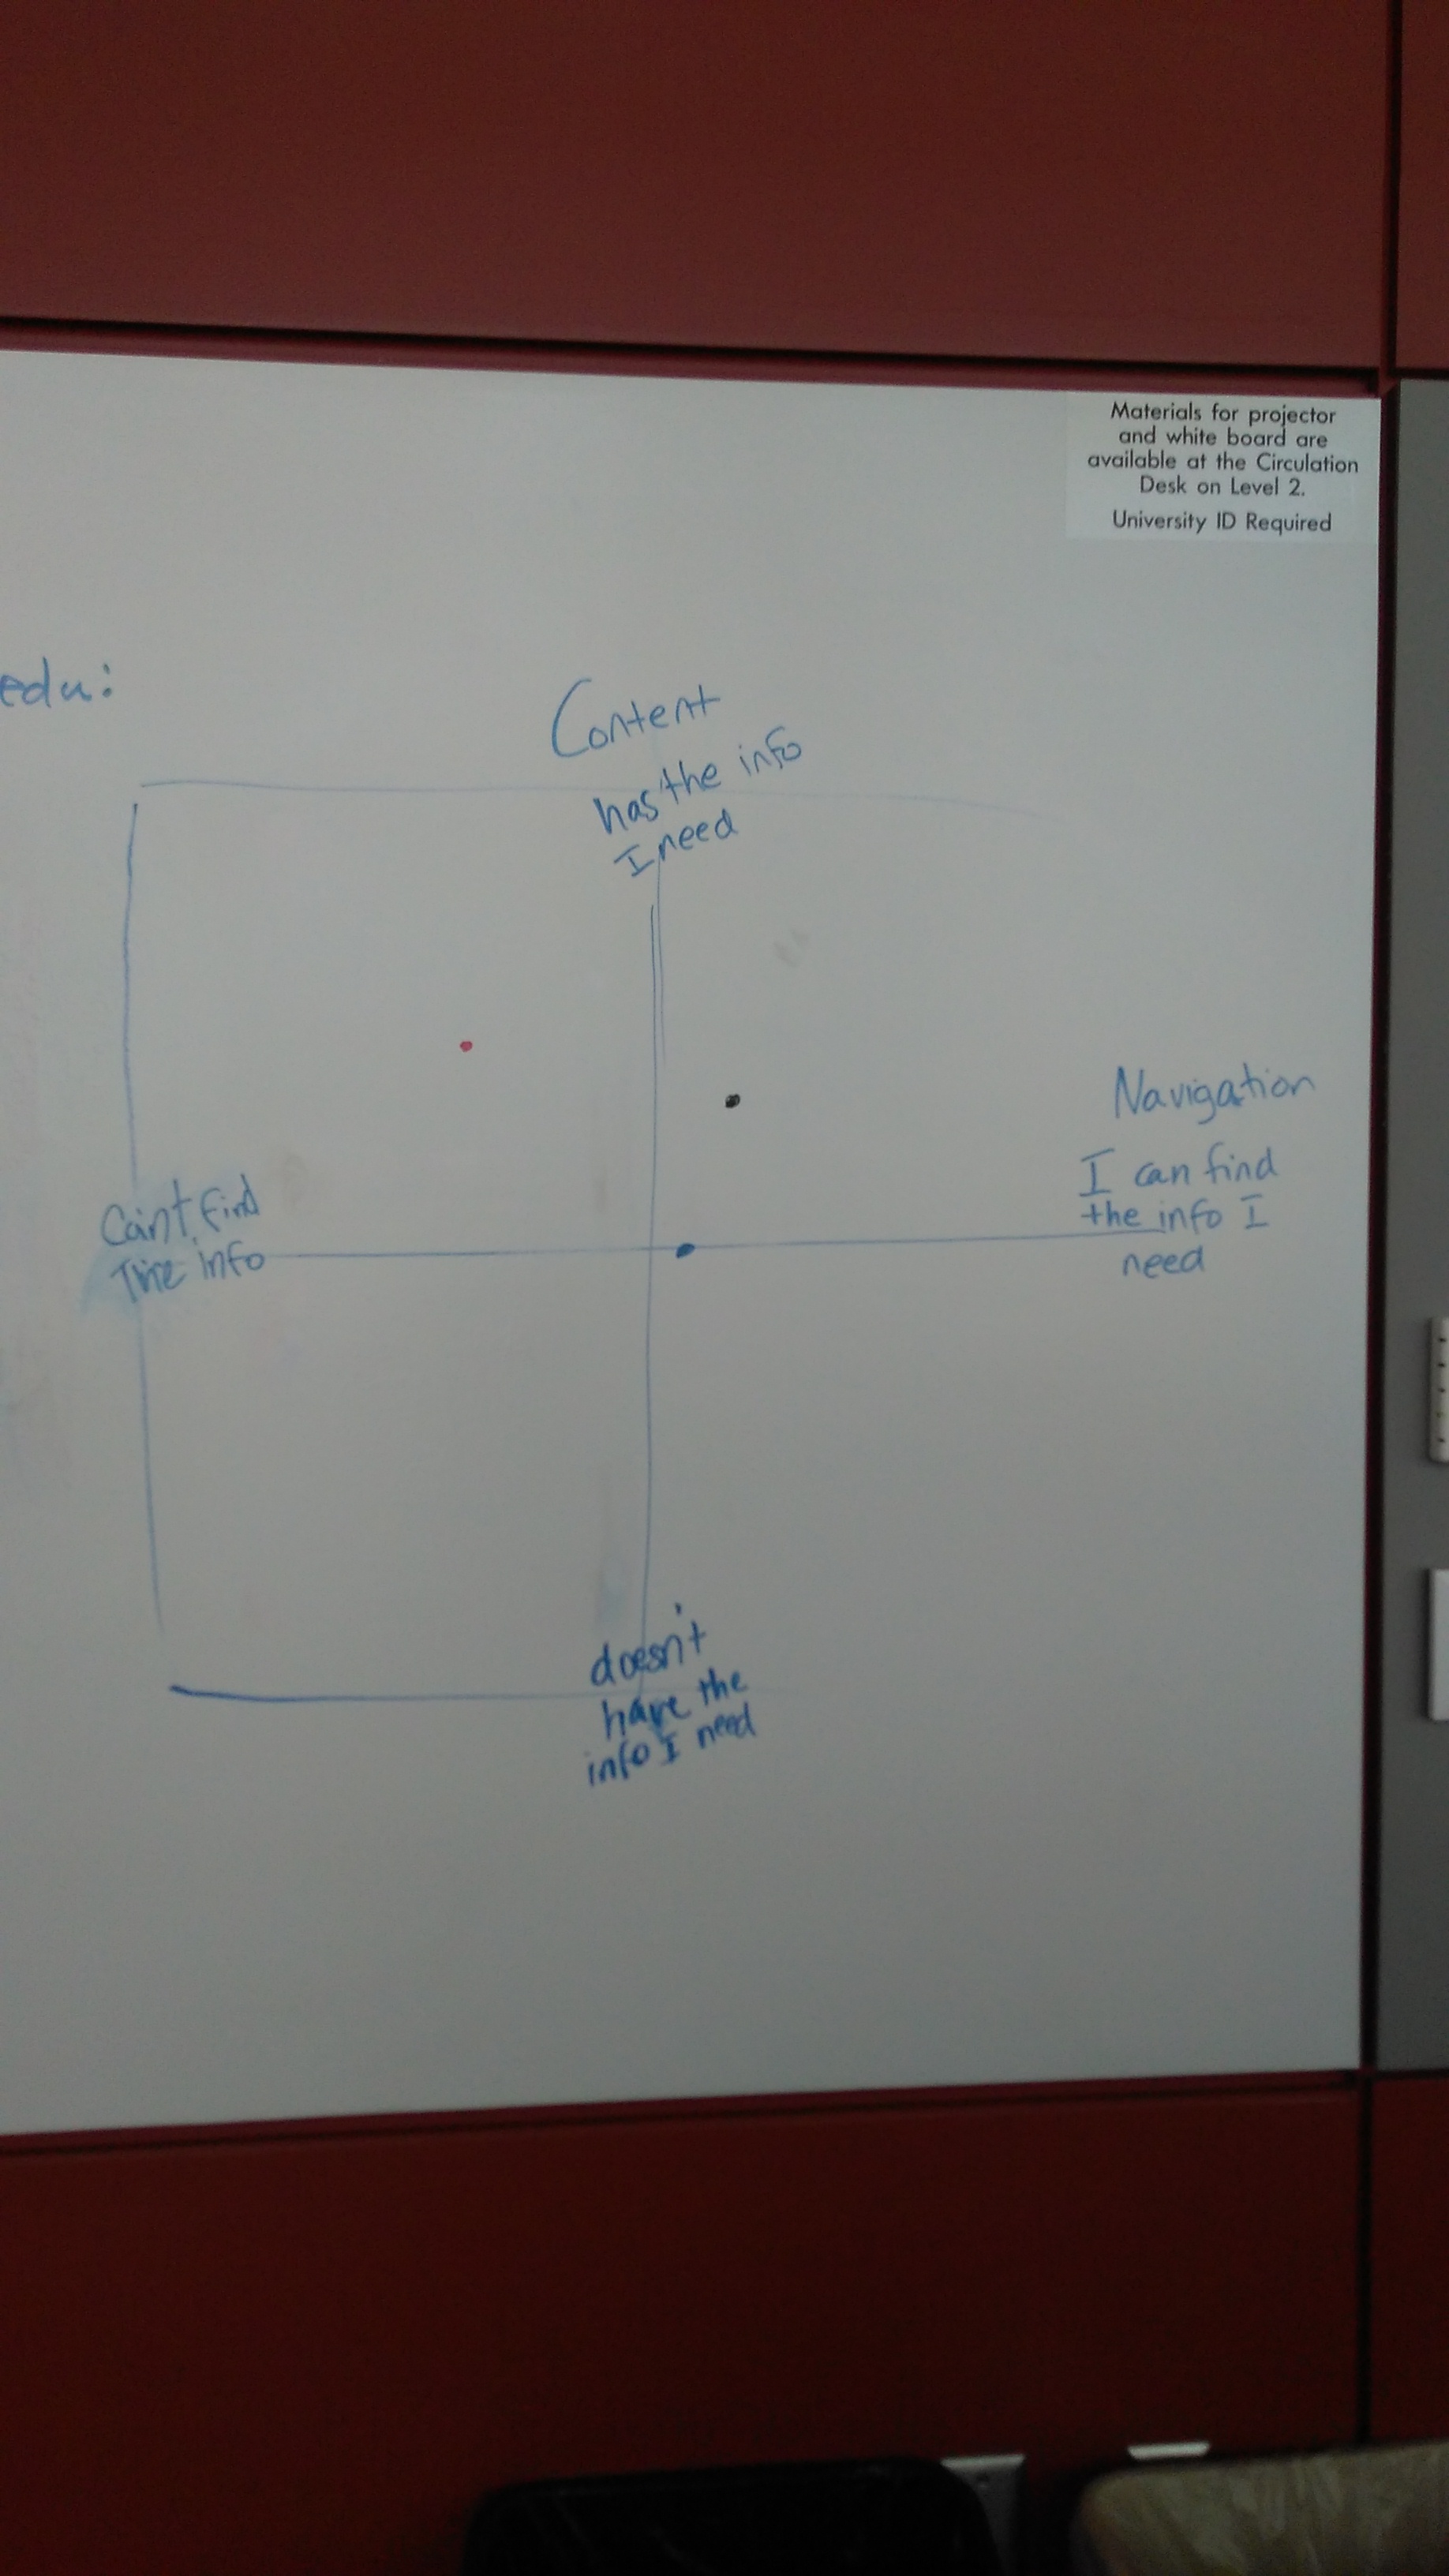 Materials for projector
and white board are
available at the Circulation
Desk on Level 2.
University ID Required
edu:
Content
has the info
I need
Navigation
I can find
the info I
need
Can't find
The info
doesn't
have the
info I need